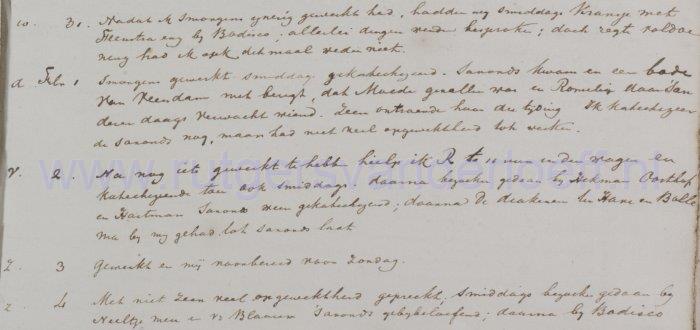 w. 31. Nadat ik smorgens ijverig gewerkt had, hadden wij smiddags Kransje met
Feenstra enz by Bodisco, allerlei dingen werden besproken; doch regt voldoe
ning had ik ook ditmaal weder niet.
d Febr 1 Smorgens gewerkt smiddag gekatechiseerd. Savonds kwam er een bode
van Veendam met berigt, dat Moeder gevallen was en Romelia daar San
deren daags verwacht wierd. Zeer ontroerde haar die tijding Ik katechiseer
de savonds nog, maar had niet veel opgewektheid tot werken.
v. 2. Na nog iets gewerkt te hebben hielp ik R te 10 uur in den wagen en
katechiseerde toen ook smiddags. daarna bezoeken gedaan by Hekman Oosthof
en Hartman Savonds weer gekatechiseerd; daarna de diakenen en
by my gehad tot savonds laat
Z. 3 Gewerkt en mij voorbereid voor Zondag.
z. 4 Met niet zeer veel opgewektheid gepreekt, smiddags bezoeken gedaan by
Neeltje en Savonds gebybeloefend; daarna by Bodisco
www.rutgersvanderloeff.nl